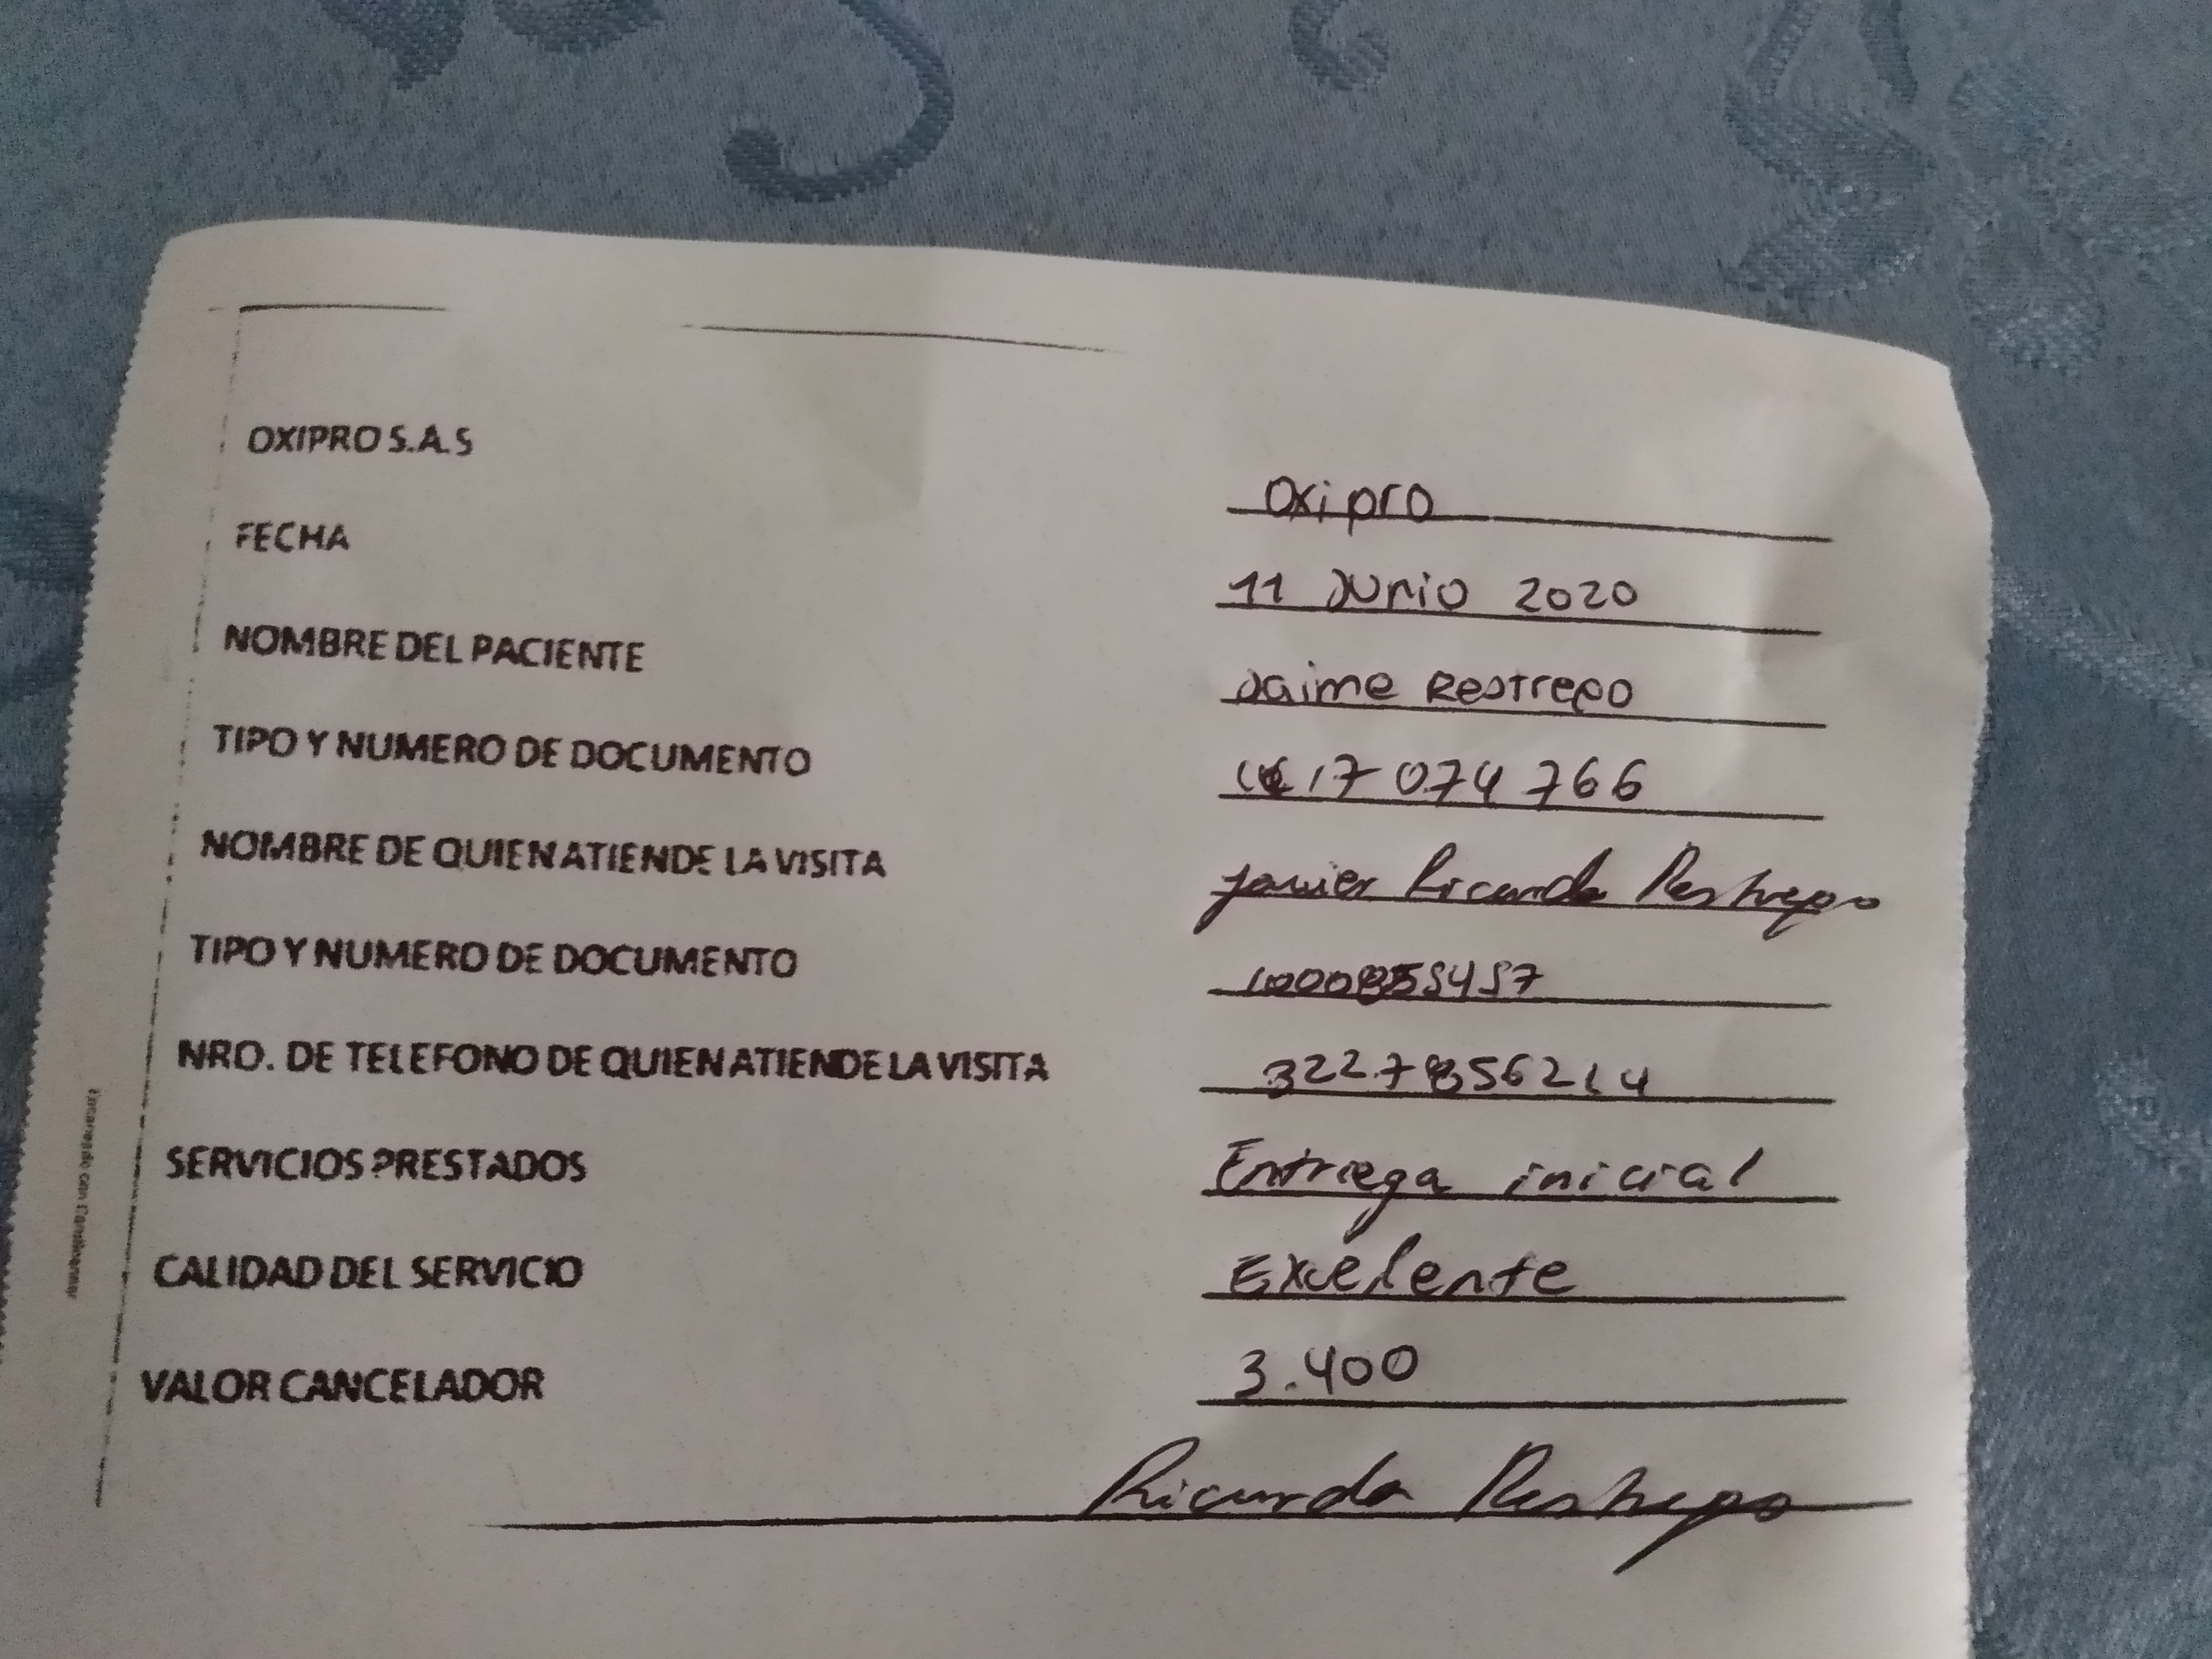 OXIPRO S.A.S
Oxipro
FECHA
11 Junio 2020
NOMBRE DEL PACIENTE
Jaime Restrepo
TIPO Y NUMERO DE DOCUMENTO
17 074 766
NOMBRE DE QUIEN ATIENDE LA VISITA
Javier Ricardo Restrepo
TIPO Y NUMERO DE DOCUMENTO
NRO. DE TELEFONO DE QUIEN ATIENDE LA VISITA
SERVICIOS PRESTADOS
Entrega inicial
CALIDAD DEL SERVICIO
Excelente
VALOR CANCELADOR
3.400
Ricardo Restrepo
Escaneado con CamScanner